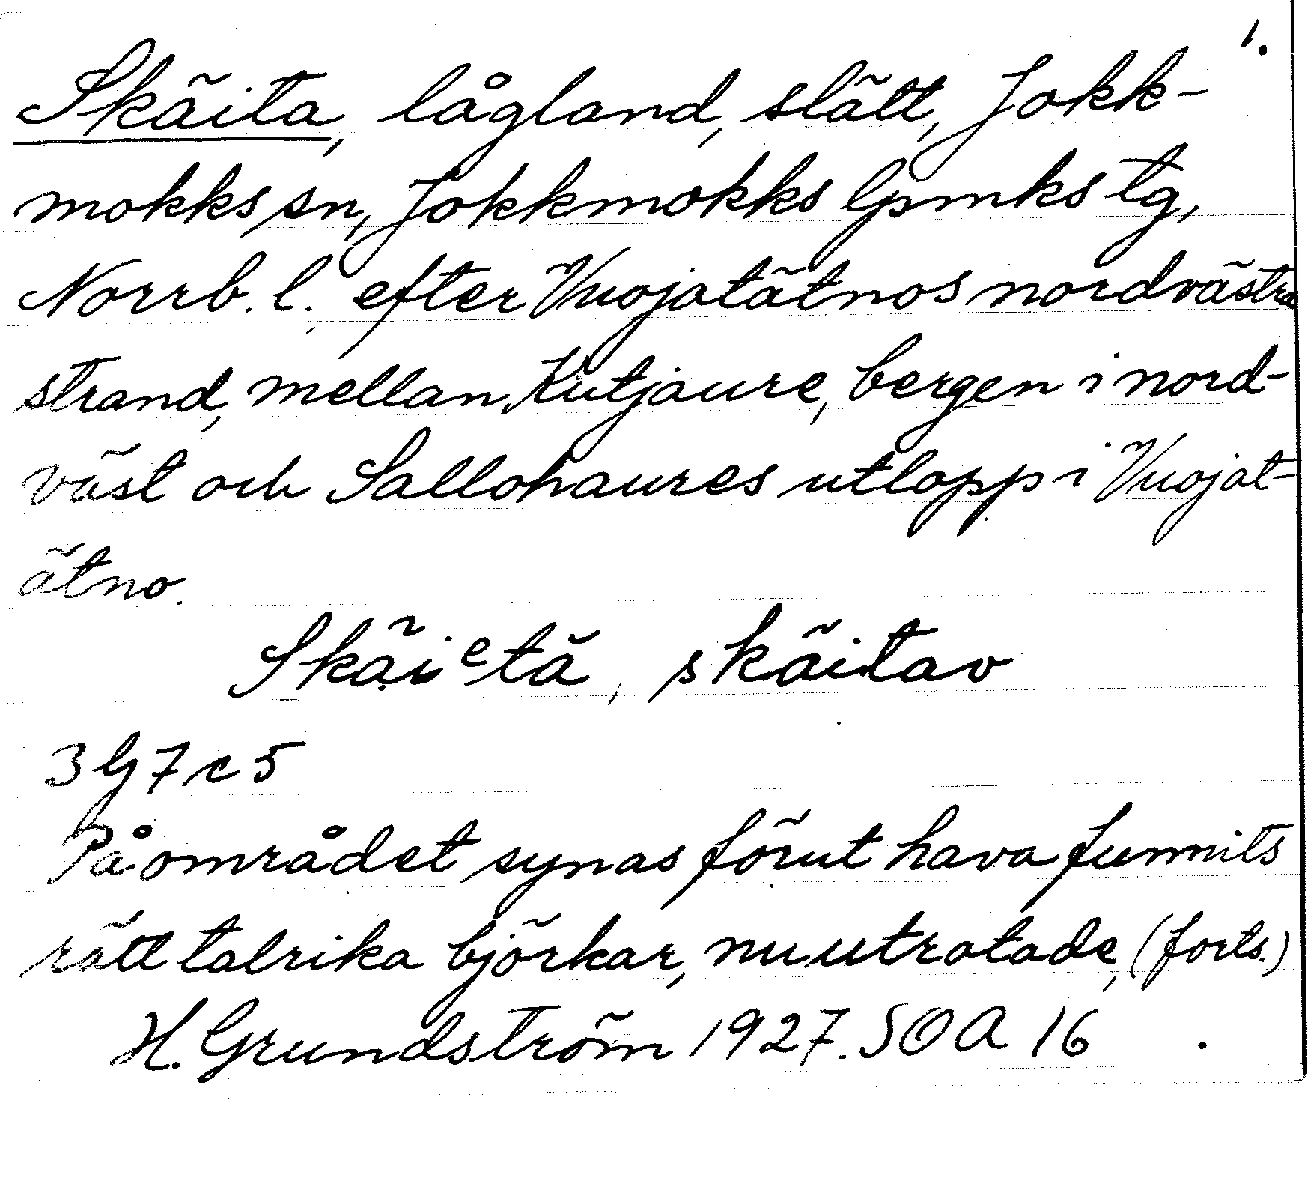 1.
Skäita, lågland, slätt, Jokk-
mokks sn, Jokkmokks lpmks tg,
Norrb. l. efter Vuojatätnos nordvästra
strand, mellan Kutjaure, bergen i nord-
väst och Sallohaures utlopp i Vuojat-
ätno.
Skäiᵉtă, skäitav
3G7c5
På området synas förut hava funnits
rätt talrika björkar, nu utrotade, (forts.)
H. Grundström 1927. SOA 16